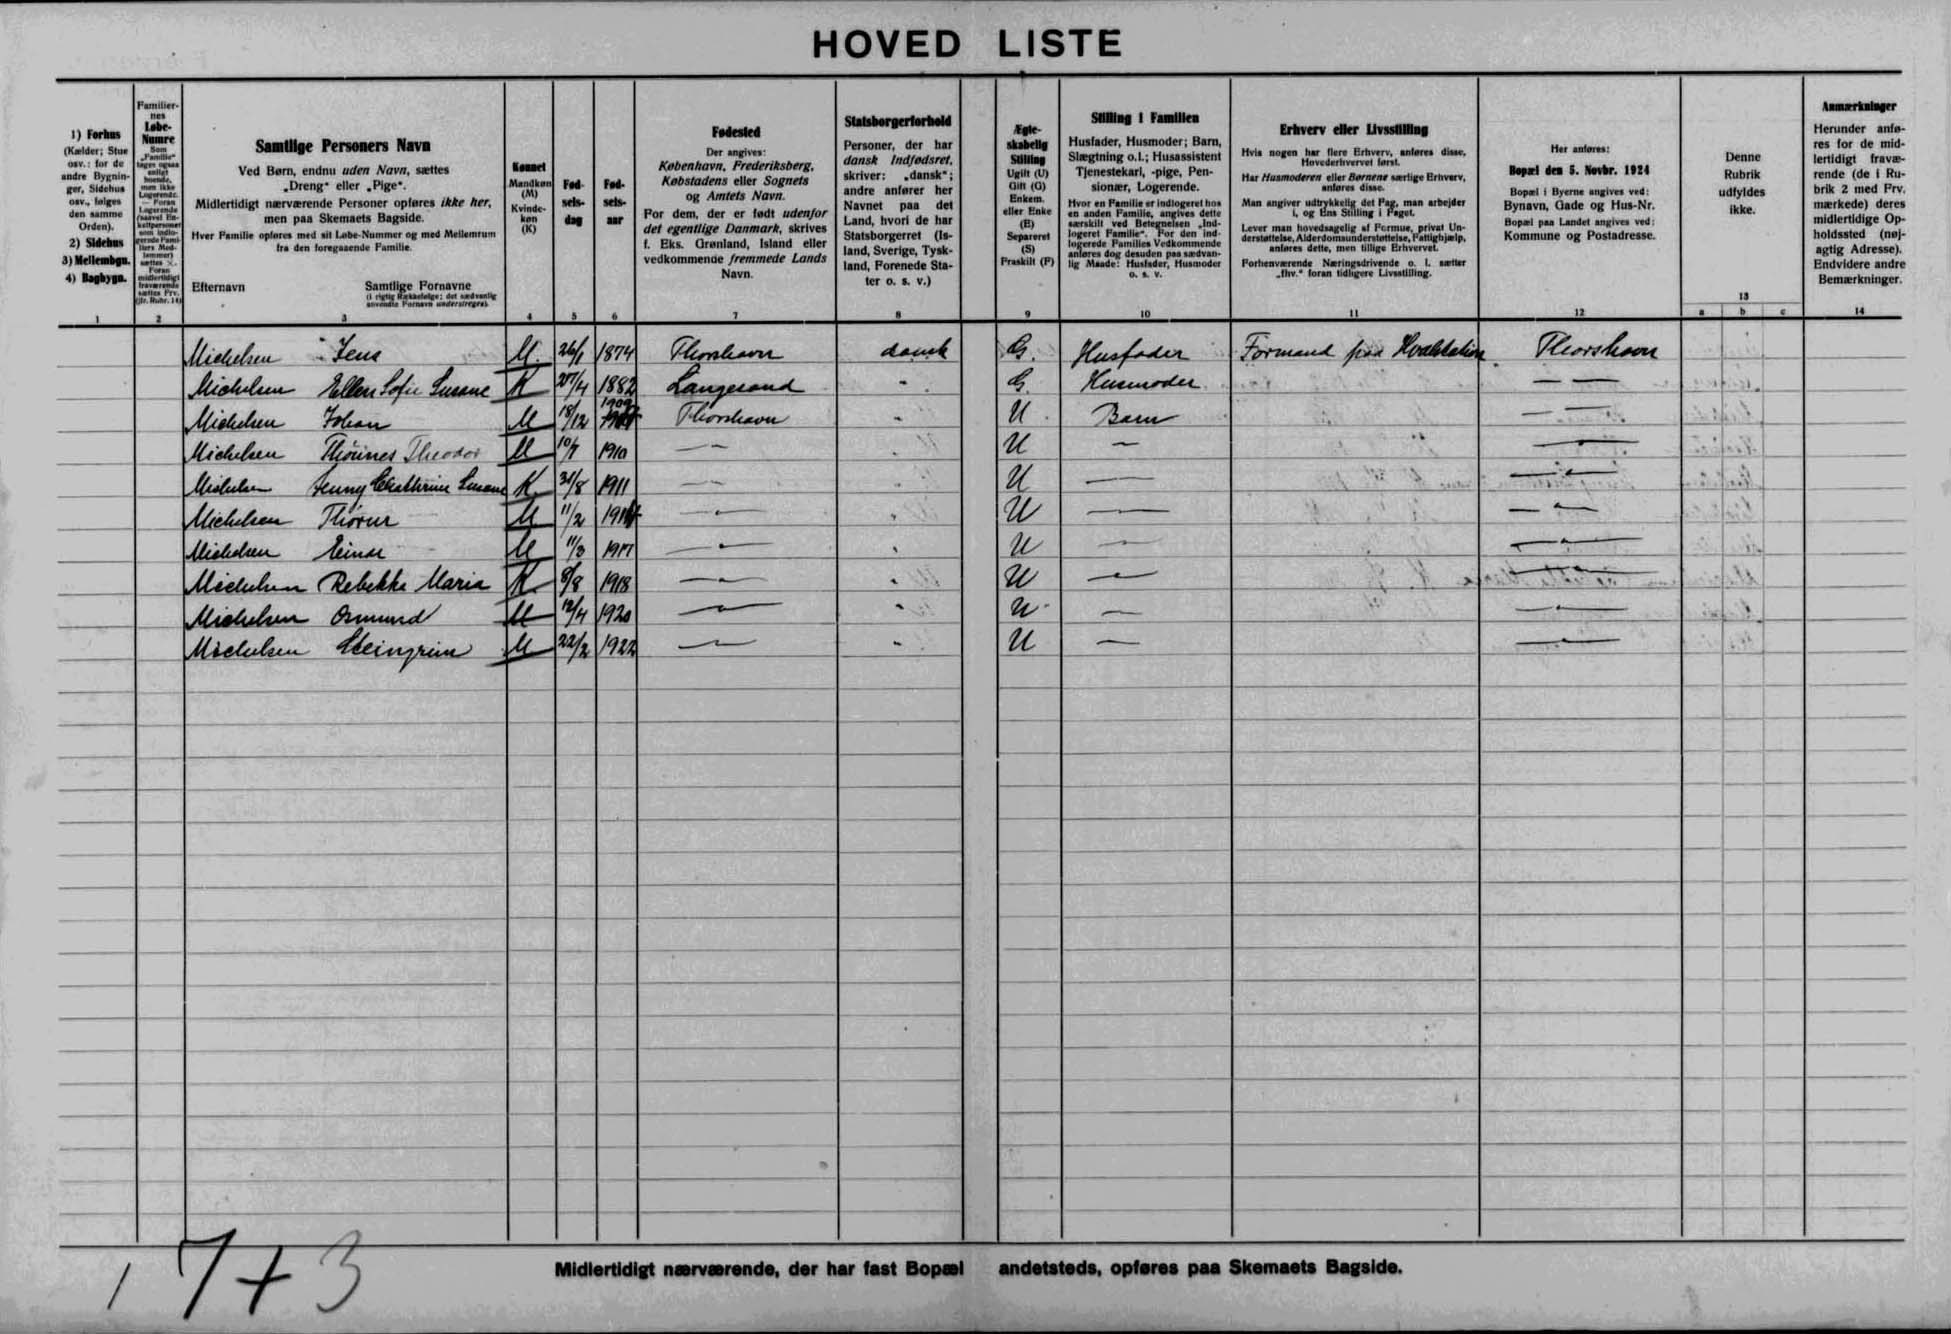 HOVED LISTE
1) Forhus
(Kælder; Stue
osv.: for de
andre Bygnin-
ger, Sidehus
osv., følges
den samme
Orden).
2) Sidehus
3) Mellembgn.
4) Bagbygn.
Familier-
nes
Løbe-
Numre
Samtlige Personers Navn
Ved Børn, endnu uden Navn, sættes
„Dreng" eller „Pige".
Midlertidigt nærværende Personer opføres ikke her,
men paa Skemaets Bagside.
Hver Familie opføres med sit Løbe-Nummer og med Mellemrum
fra den foregaaende Familie.
Efternavn Samtlige Fornavne
(i rigtig Rækkefølge; det sædvanlig
anvendte Fornavn understreges).
Kønnet
Mandkøn
(M)
Kvinde-
køn
(K)
Fød-
sels-
dag
Fød-
sels-
aar
Fødested
Der angives:
København, Frederiksberg,
Købstadens eller Sognets
og Amtets Navn.
For dem, der er født udenfor
det egentlige Danmark, skrives
f. Eks. Grønland, Island eller
vedkommende fremmede Lands
Navn.
Statsborgerforhold
Personer, der har
dansk Indfødsret,
skriver: „dansk";
andre anfører her
Navnet paa det
Land, hvori de har
Statsborgerret (Is-
land, Sverige, Tysk-
land, Forenede Sta-
ter o. s. v.)
Ægte-
skabelig
Stilling
Ugift (U)
Gift (G)
Enkem.
eller Enke
(E)
Separeret
(S)
Fraskilt (F)
Stilling i Familien
Husfader, Husmoder; Barn,
Slægtning o.l.; Husassistent
Tjenestekarl, -pige, Pen-
sionær, Logerende.
Hvor en Familie er indlogeret hos
en anden Familie, angives dette
særskilt ved Betegnelsen „Ind-
logeret Familie". For den ind-
logerede Families Vedkommende
anføres dog desuden paa sædvan-
lig Maade: Husfader, Husmoder
o. s. v.
Erhverv eller Livsstilling
Hvis nogen har flere Erhverv, anføres disse,
Hovederhvervet først.
Har Husmoderen eller Børnene særlige Erhverv,
anføres disse.
Man angiver udtrykkelig det Fag, man arbejder
i, og Ens Stilling i Faget.
Lever man hovedsagelig af Formue, privat Un-
derstøttelse, Alderdomsunderstøttelse, Fattighjælp,
anføres dette, men tillige Erhvervet.
Forhenværende Næringsdrivende o. l. sætter
„fhv." foran tidligere Livsstilling.
Her anføres:
Bopæl den 5. Novbr. 1924
Bopæl i Byerne angives ved:
Bynavn, Gade og Hus-Nr.
Bopæl paa Landet angives ved:
Kommune og Postadresse.
Denne
Rubrik
udfyldes
ikke.
Anmærkninger
Herunder anfø-
res for de mid-
lertidigt fravæ-
rende (de i Ru-
brik 2 med Frv.
mærkede) deres
midlertidige Op-
holdssted (nøj-
agtig Adresse).
Endvidere andre
Bemærkninger.
1 2 3 4 5 6 7 8 9 10 11 12 13 a b c 14
Michelsen Jens M. 26/1 1874 Thorshavn dansk G. Husfader Formand paa Hvalstation Thorshavn
Michelsen Ellen Sofie Susane K 27/4 1882 Langesand " G. Husmoder — —
Michelsen Johan M 18/12 1909 Thorshavn " U Barn — —
Michelsen Thórines Theodor M 10/7 1910 — " U — — " —
Michelsen Jenny Cathrine Susane K. 31/8 1911 — " U — — " —
Michelsen Thórur M 11/2 — " — " U — — " —
Michelsen Einar M 11/3 1917 — " — " U — — " —
Michelsen Rebekka Maria K. 8/8 1918 — " — " U — " — — " —
Michelsen Osmund M 12/4 1920 — " — " U — — " —
Michelsen Steingrim M 22/2 1922 — " — " U — — " —
Midlertidigt nærværende, der har fast Bopæl andetsteds, opføres paa Skemaets Bagside.
1 7 + 3